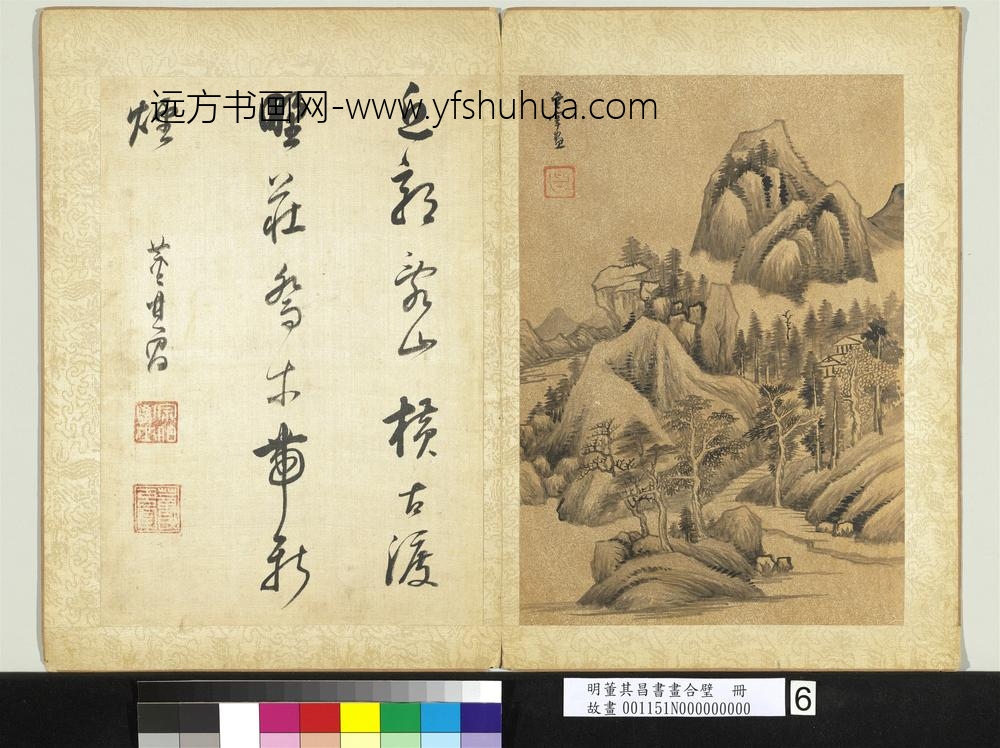 远方书画网-www.yfshuhua.com
近郭亂山橫古渡
野莊喬木帶新
煙
董其昌
玄宰畫
明董其昌書畫合璧 冊
故畫001151N000000000
6